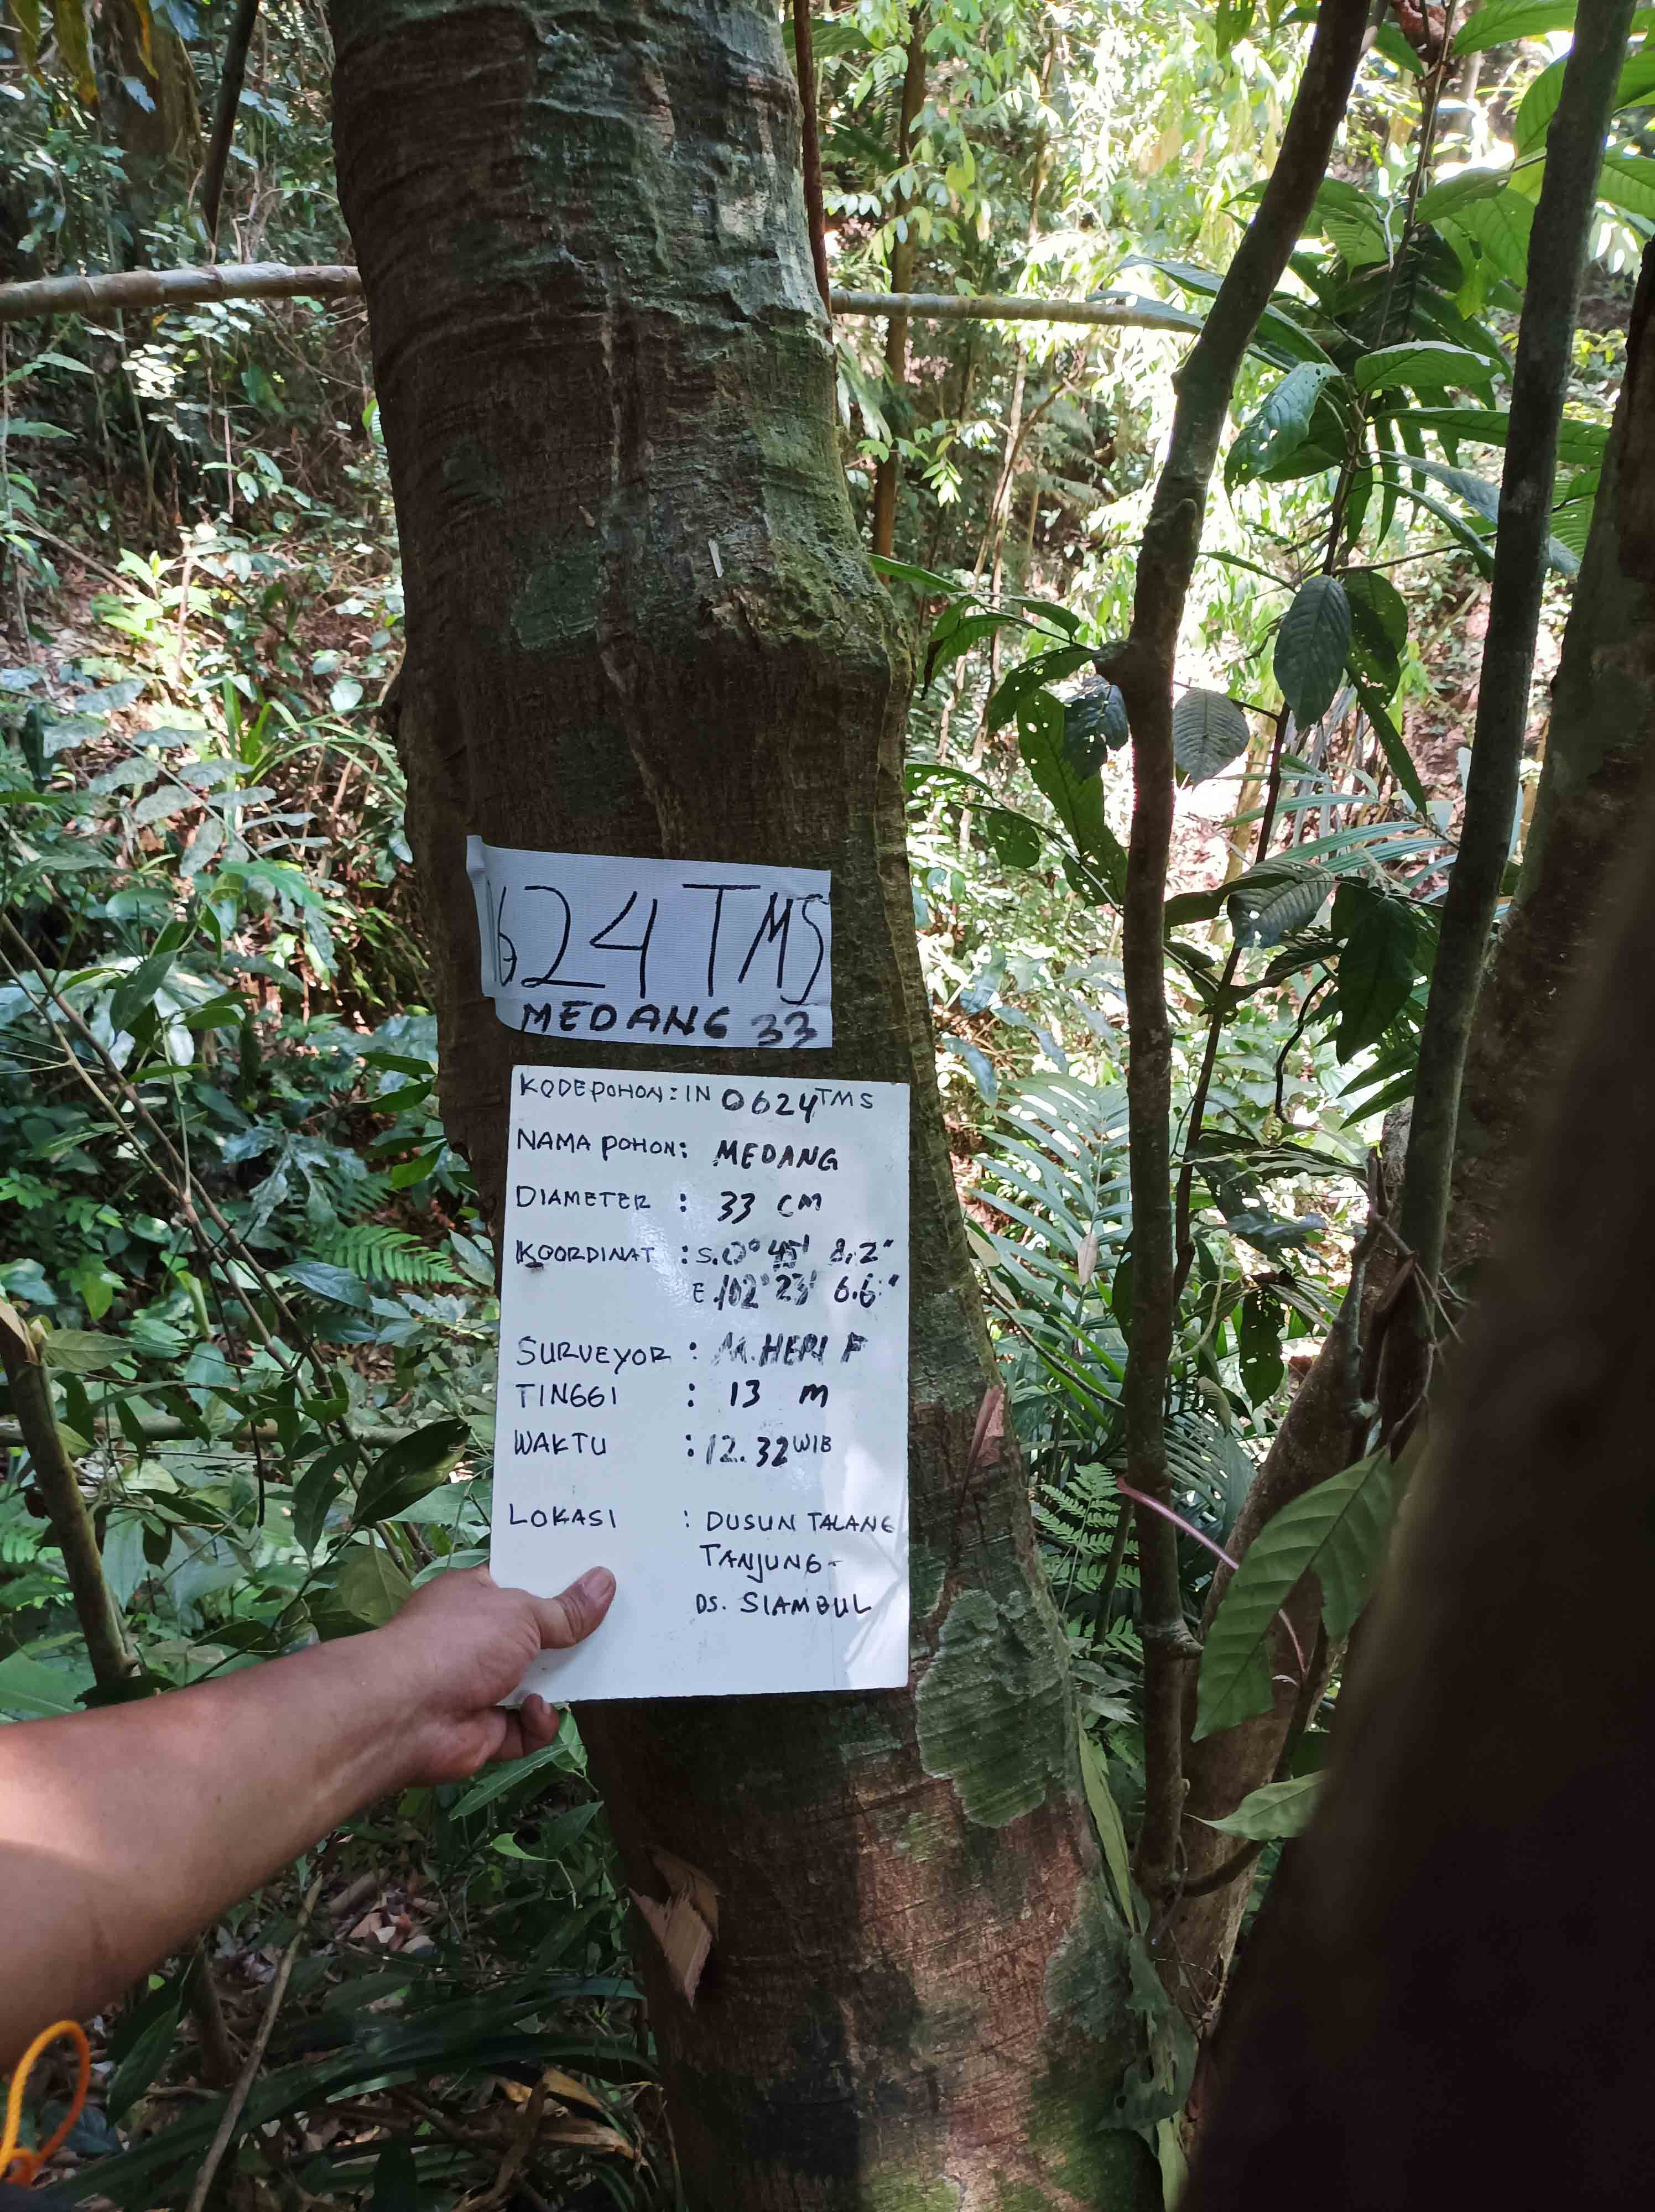 624 TMS
MEDANG 33
KODE POHON : IN 0624 TMS
NAMA POHON : MEDANG
DIAMETER : 33 CM
KOORDINAT : S.0° 45' 8,2"
E.102° 23' 6.6"
SURVEYOR : M. HERI F
TINGGI : 13 M
WAKTU : 12.32 WIB
LOKASI : DUSUN TALANG
TANJUNG-
DS. SIAMBUL